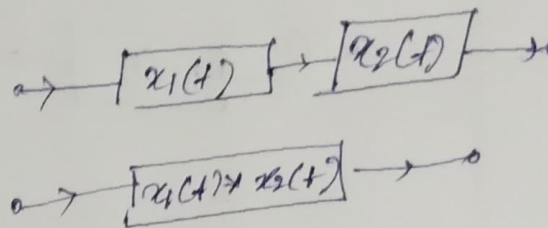 x₁(t) x₂(t)
x₁(t) * x₂(t)